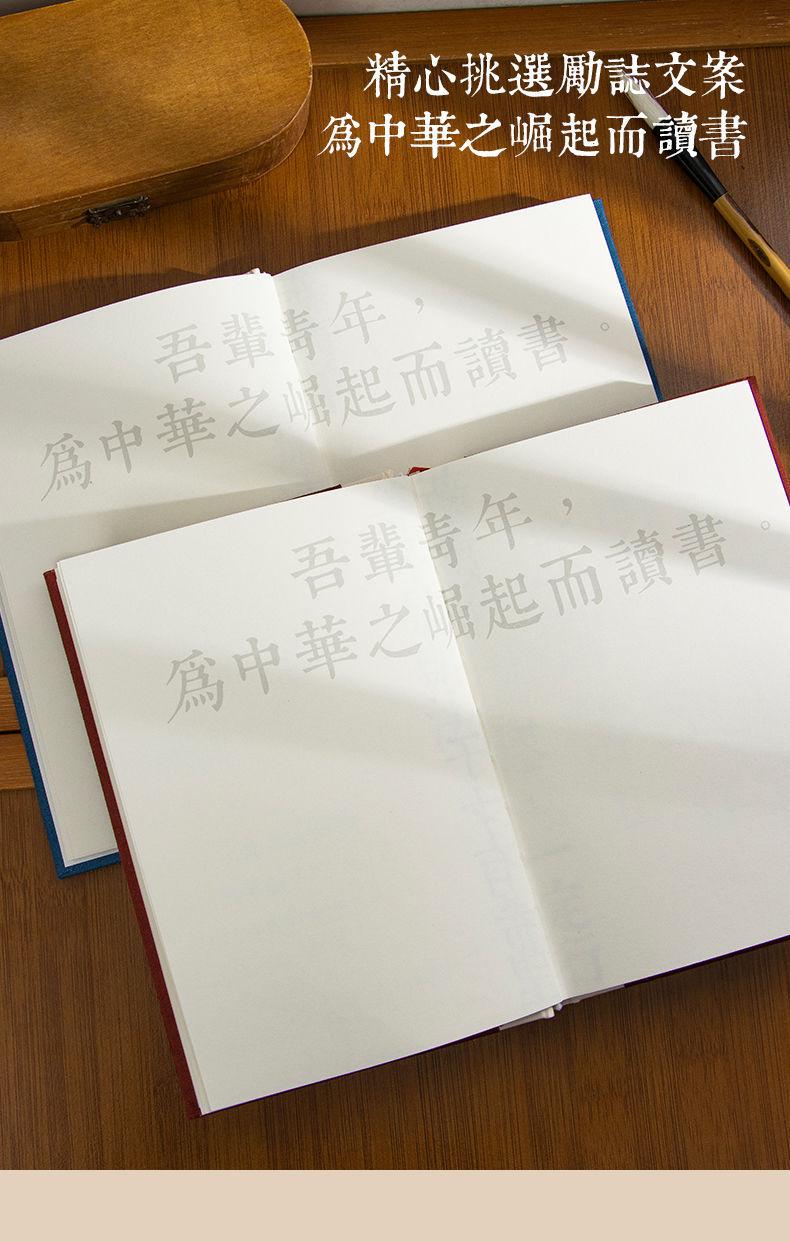 精心挑選勵誌文案
爲中華之崛起而讀書
吾輩青年，
爲中華之崛起而讀書。
吾輩青年，
爲中華之崛起而讀書。